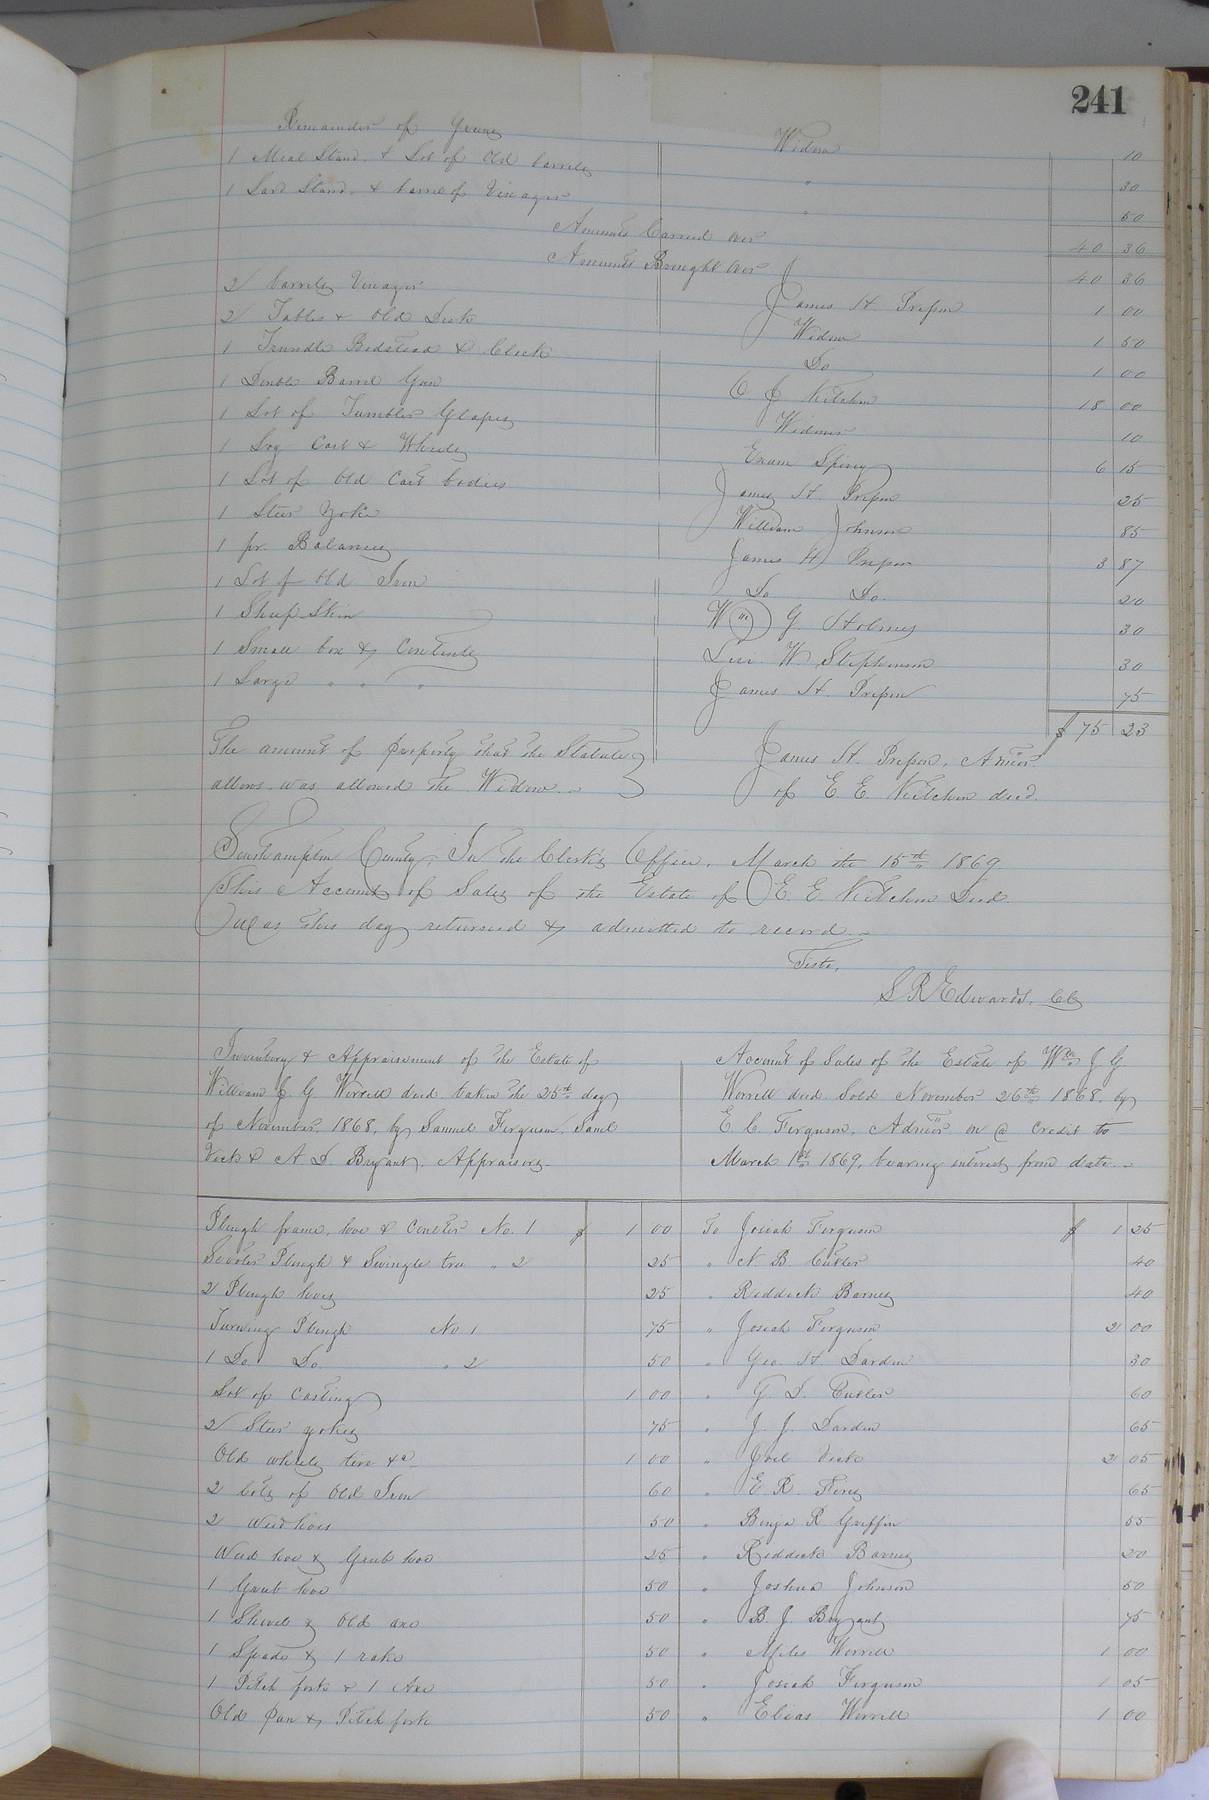 241
Remainder of Geese Widow 10
1 Meal Stand & Lot of Old barrels " 30
1 Lard Stand & barrel of Vinager " 50
Amounts Carried Over 40 36
Amounts Brought Over 40 36
2 barrels Vinager James H. 1 00
2 Tables & Old Desk Widow 1 50
1 Trundle Bedstead & Clock Do 1 00
1 Double Barrel Gun C J Kitchen 18 00
1 Lot of Tumbler Glasses Widow 10
1 Log Cart & Wheels Exum Spivey 6 15
1 Lot of Old Cart bodies James H. 25
1 Steer Yoke William Johnson 85
1 pr. Balances James H. 3 87
1 Lot of Old Iron Do Do. 20
1 Sheep Skin Wm G Holmes 30
1 Small box & Contents Levi W. Stephenson 30
1 Large " " " James H. 75
$ 75 23
The amount of property that the Statute
allows, was allowed the Widow.
James H. Admor.
of E E Kitchen decd.
Southampton County, In the Clerk's Office, March the 15th 1869.
This Account of Sales of the Estate of E. E. Kitchen Decd.
Was this day returned & admitted to record.
Teste,
S R Edwards, Clk
Inventory & Appraisement of the Estate of
William J. G. Worrell decd taken the 25th day
of November, 1868, by Samuel Ferguson, Saml
Vick & A D Bryant, Appraisers
Account of Sales of the Estate of Wm J G
Worrell decd. Sold November 26th 1868. by
E. C. Ferguson, Admor on a Credit to
March 1st 1869, bearing interest from date
Plough frame, hoe & Coulter No. 1 $ 1 00 To Josiah Ferguson $ 1 25
Scooter Plough & Swingle tree " 2 25 " N. B. Cutler 40
2 Plough hoes 25 " Reddick Barnes 40
Turning Plough No 1 75 " Josiah Ferguson 2 00
1 Do Do " 2 50 " Geo. H. Darden 30
Lot of Castings 1 00 " G. D. Cutler 60
2 Steer yokes 75 " J. J. Darden 65
Old wheels tire &c 1 00 " Joel Vick 2 05
2 Lots of Old Iron 60 " E R 65
2 Weed hoes 50 " Benja R Griffin 55
Weed hoe & Grub hoe 25 " Reddick Barnes 20
1 Grub hoe 50 " Joshua Johnson 50
1 Shovel & Old axe 50 " B. J. Bryant 75
1 Spade & 1 rake 50 " Miles Worrell 1 00
1 Pitch fork & 1 Axe 50 " Josiah Ferguson 1 05
Old Pan & Pitch fork 50 " Elias Worrell 1 00